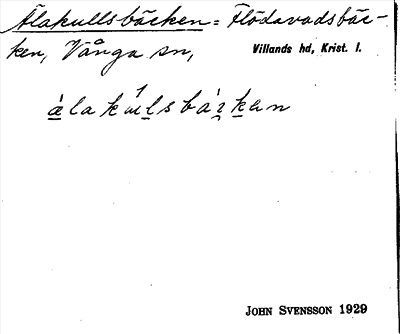 Ålakullsbäcken = Flödavadsbäc-
ken, Vånga sn, Villands hd, Krist. l.
JOHN SVENSSON 1929